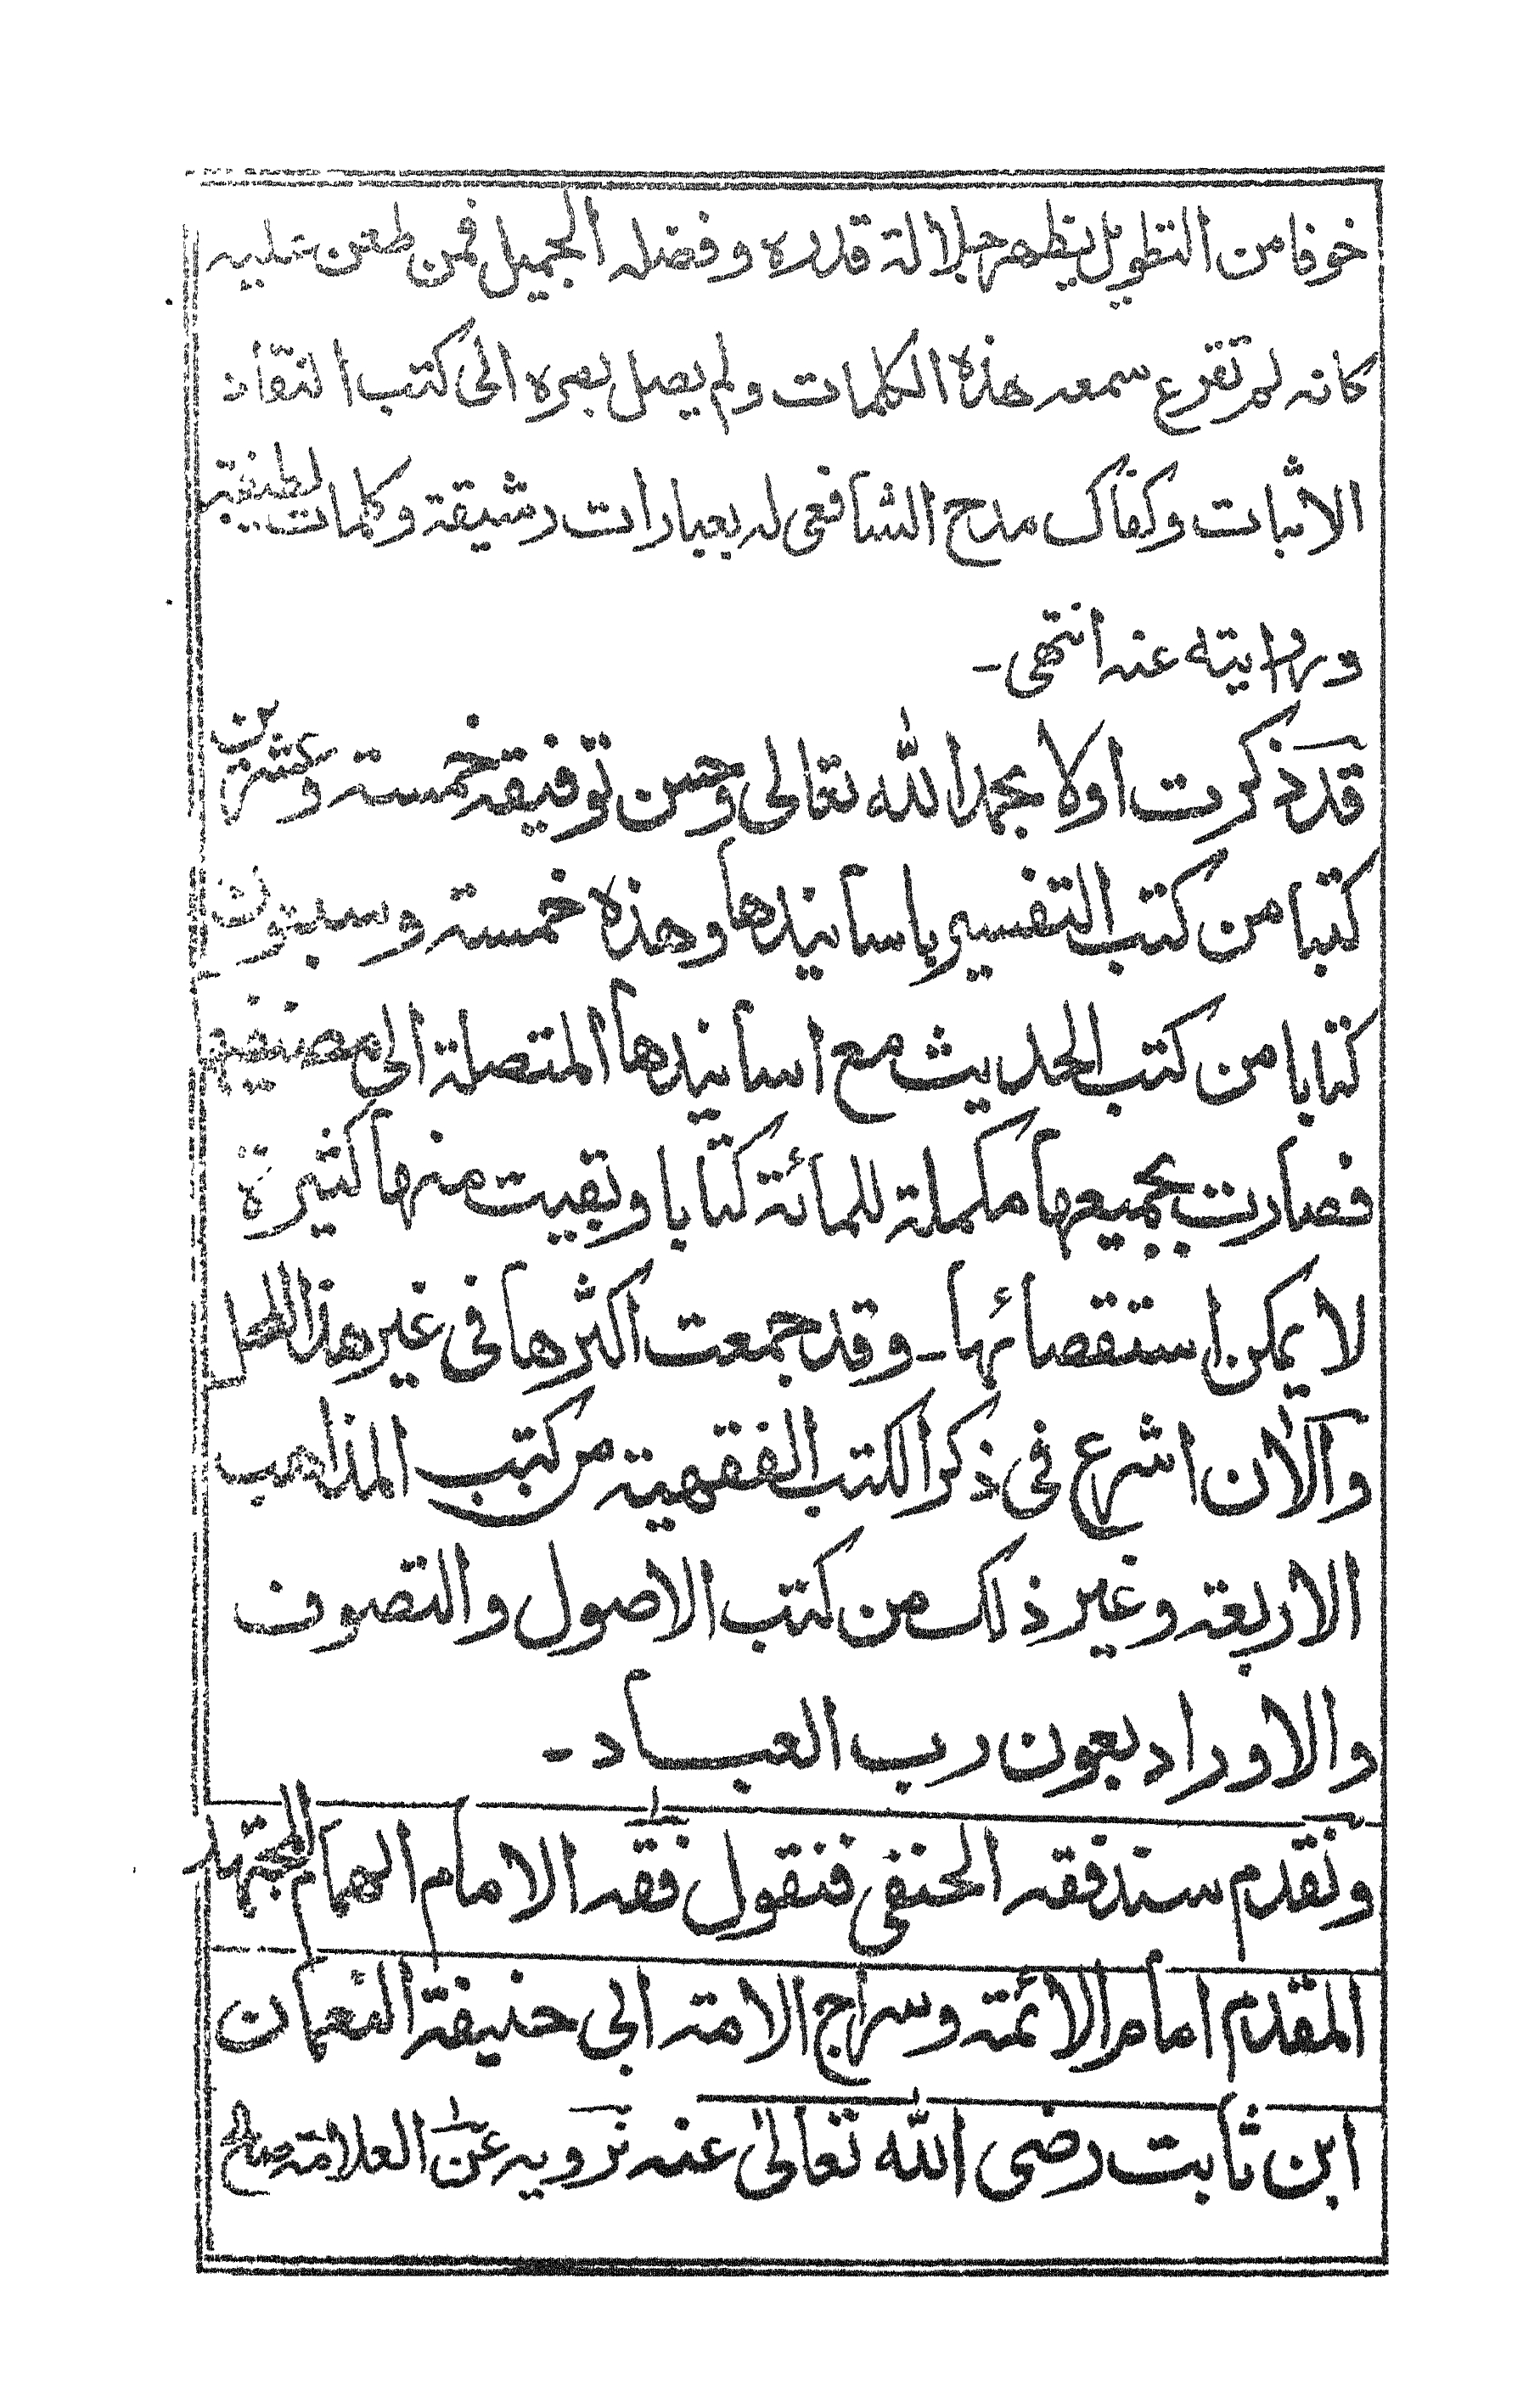 خوفا من التطويل يظهر جلالة قدره وفضله الجميل فمن طعن عليه
كانه لم تقرع سمعه هذه الكلمات ولم يصل بصره الى كتب النقاد
الاثبات وكفاك مدح الشافعى له بعبارات رشيقة وكلمات لطيفة
وروايته عنه انتهى ـ
قد ذكرت اولا بحمد الله تعالى وحسن توفيقه خمسة وعشرين
كتبا من كتب التفسير باسانيدها وهذه خمسة وسبعون
كتابا من كتب الحديث مع اسانيدها المتصلة الى مصنفيها
فصارت بجميعها مكملة للمائة كتابا وبقيت منها كثيرة
لا يمكن استقصائها ـ وقد جمعت اكثرها فى غير هذا المحل
والآن اشرع فى ذكر الكتب الفقهية من كتب المذاهب
الاربعة وغير ذلك من كتب الاصول والتصوف
والاوراد بعون رب العباد ـ
ونقدم سند فقه الحنفى فنقول فقه الامام الهمام المجتهد
المقدم امام الائمة وسراج الامة ابى حنيفة النعمان
ابن ثابت رضى الله تعالى عنه نرويه عن العلامة صالح